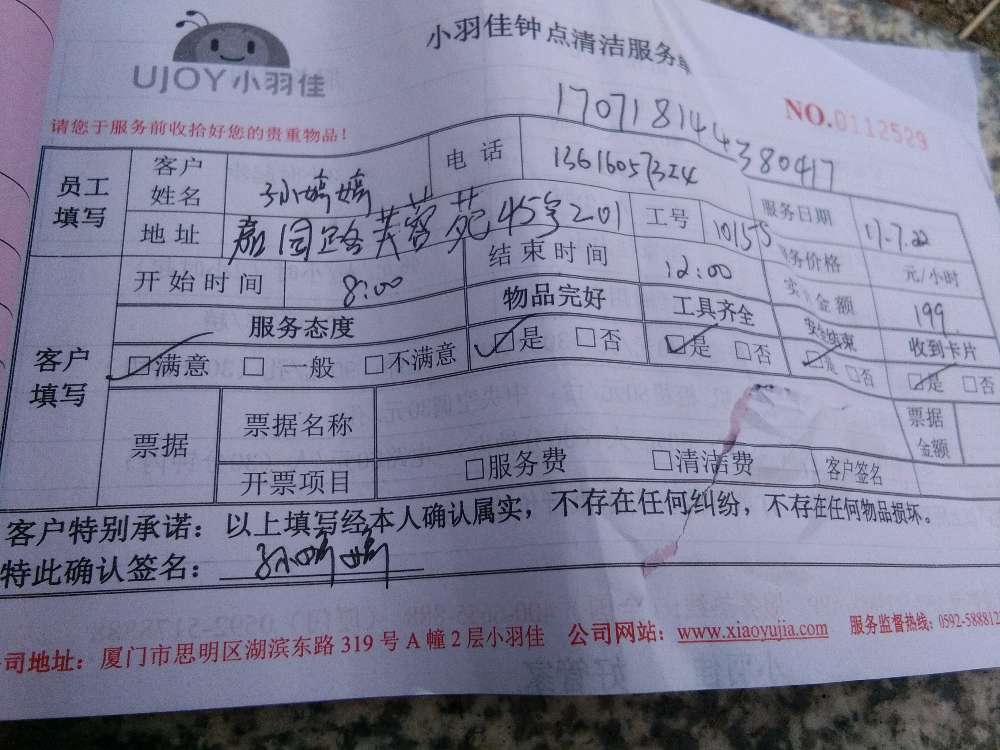 UJOY小羽佳
小羽佳钟点清洁服务单
NO.0112529
170718144380417
请您于服务前收拾好您的贵重物品!
员工填写 客户姓名 孙婷婷 电话 服务日期 17.7.22
地址 嘉园路芙蓉苑45号201 工号 10155 务价格 元/小时
客户填写 开始时间 8:00 结束时间 12:00 实 金额 199
服务态度 物品完好 工具齐全 安全结束 收到卡片
□满意 □一般 □不满意 □是 □否 □是 □否 □是 □否 □是 □否
票据 票据名称 票据金额
开票项目 □服务费 □清洁费 客户签名
客户特别承诺：以上填写经本人确认属实，不存在任何纠纷，不存在任何物品损坏。
特此确认签名：孙婷婷
司地址：厦门市思明区湖滨东路319号A幢2层小羽佳 公司网站：www.xiaoyujia.com 服务监督热线：0592-588812